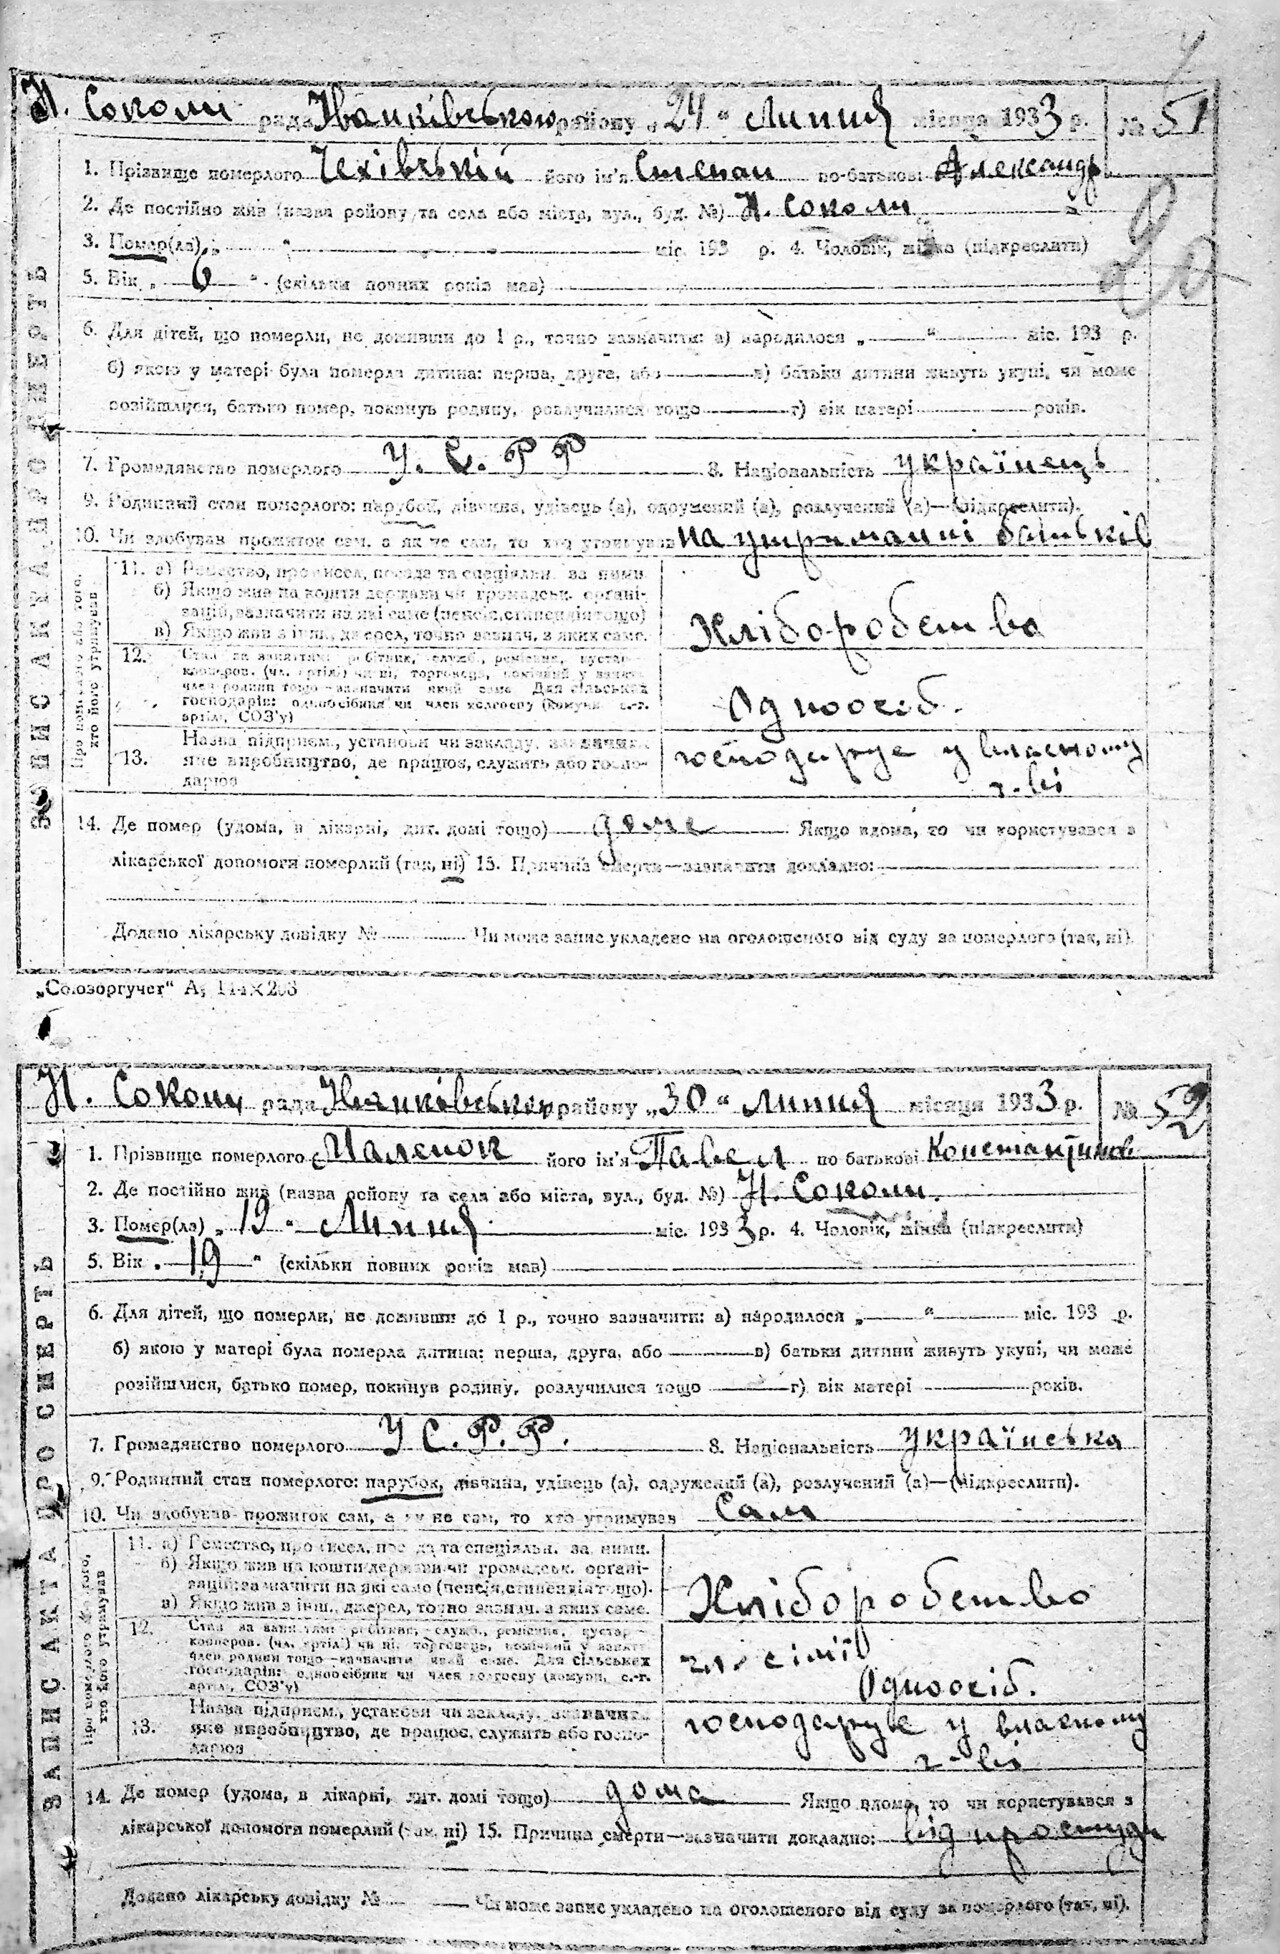 Н. Соколи рада Іванківською району „24“ Липня місяця 1933 р. № 51
20
ЗАПИС АКТА ПРО СМЕРТЬ
1. Прізвище померлого Чехівській його ім'я Степан по-батькові Александр
2. Де постійно жив (назва району та села або міста, вул., буд. №) Н. Соколи
3. Помер(ла) „ “ міс. 193 р. 4. Чоловік, жінка (підкреслити)
5. Вік „ 6 “ (скільки повних років мав)
6. Для дітей, що померли, не доживши до 1 р., точно зазначити: а) народилося „ “ міс. 193 р.
б) якою у матері була померла дитина: перша, друга, або в) батьки дитини живуть укупі, чи може
розійшлися, батько помер, покинув родину, розлучилися тощо г) вік матері років.
7. Громадянство померлого У. С. Р Р 8. Національність українець
9. Родинний стан померлого: парубок, дівчина, удівець (а), одружений (а), розлучений (а)—(підкреслити).
10. Чи здобував прожиток сам, а як не сам, то хто утримував на утриманні батьків
Про померлого або того, хто його утримував
11. а) Ремество, промисел, посада та спеціяльн. за ними.
б) Якщо жив на кошти держави чи громадськ. органі-
зацій, зазначити на які саме (пенсія, стипендія тощо)
в) Якщо жив з інш. джерел, точно зазнач. з яких саме.
Хліборобство
12. Стан за заняттям: робітник, службов., ремісник, кустар-
кооперов. (чл. артілі) чи ні, торговець, помічний у занятт.
член родини тощо—зазначити який саме. Для сільських
господарів: одноосібник чи член колгоспу (комуни, с.-г.
артілі, СОЗ'у)
Одноосіб.
13. Назва підприєм., установи чи закладу, зазначити
яке виробництво, де працює, служить або госпо-
дарює
господарує у власному
г-ві
14. Де помер (удома, в лікарні, дит. домі тощо) дома Якщо вдома, то чи користувався з
лікарської допомоги померлий (так, ні) 15. Причина смерти—зазначити докладно:
Додано лікарську довідку № Чи може запис укладено на оголошеного від суду за померлого (так, ні).
„Союзоргучет“ А; 144×203
Н. Соколи рада Іванківською району „30“ Липня місяця 1933 р. № 52
ЗАПИС АКТА ПРО СМЕРТЬ
1. Прізвище померлого Маленок його ім'я Павел по батькові Констянтинов
2. Де постійно жив (назва району та села або міста, вул., буд. №) Н. Соколи.
3. Помер(ла) „19“ Липня міс. 1933 р. 4. Чоловік, жінка (підкреслити)
5. Вік „ 19 “ (скільки повних років мав)
6. Для дітей, що померли, не доживши до 1 р., точно зазначити: а) народилося „ “ міс. 193 р.
б) якою у матері була померла дитина: перша, друга, або в) батьки дитини живуть укупі, чи може
розійшлися, батько помер, покинув родину, розлучилися тощо г) вік матері років.
7. Громадянство померлого У С. Р. Р. 8. Національність українська
9. Родинний стан померлого: парубок, дівчина, удівець (а), одружений (а), розлучений (а)—(підкреслити).
10. Чи здобував прожиток сам, а як не сам, то хто утримував Сам
Про померлого або того, хто його утримував
11. а) Ремество, промисел, посада та спеціяльн. за ними.
б) Якщо жив на кошти держави чи громадськ. органі-
зацій, зазначити на які само (пенсія, стипендія тощо).
в) Якщо жив з інш. джерел, точно зазнач. з яких саме.
Хліборобство
12. Стан за заняттям: робітник, службов., ремісник, кустар-
кооперов. (чл. артілі) чи ні, торговець, помічний у занятт.
член родини тощо—зазначити який саме. Для сільських
господарів: одноосібник чи член колгоспу (комуни, с.-г.
артілі, СОЗ'у)
чл. сімії
Одноосіб.
13. Назва підприєм., установи чи закладу, зазначити
яке виробництво, де працює, служить або госпо-
дарює
господарує у власному
г-ві
14. Де помер (удома, в лікарні, дит. домі тощо) дома Якщо вдома, то чи користувався з
лікарської допомоги померлий (так, ні) 15. Причина смерти—зазначити докладно: від простуди
Додано лікарську довідку № Чи може запис укладено на оголошеного від суду за померлого (так, ні).